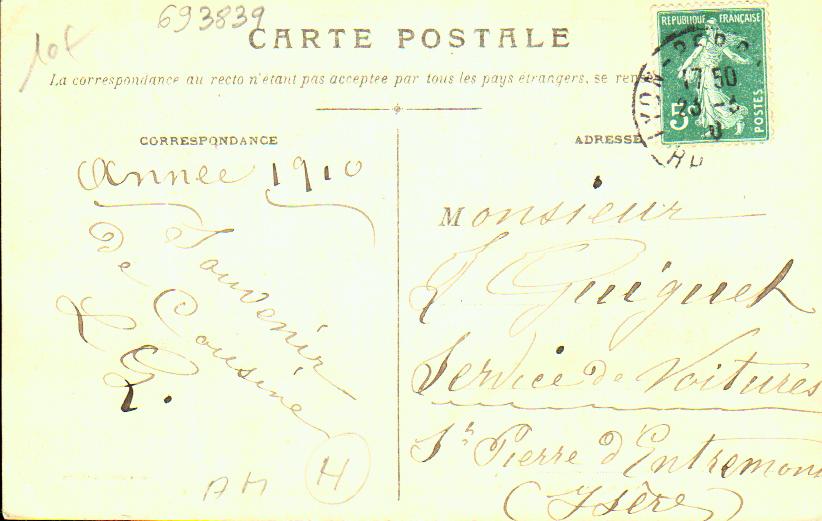 10f
693839
CARTE POSTALE
La correspondance au recto n'étant pas acceptée par tous les pays étrangers, se ren
REPUBLIQUE FRANÇAISE
5c
POSTES
LYON-PERR
17 50
23 -3
CORRESPONDANCE
ADRESSE
Année 1910
Souvenir
De Cousine
L G.
Monsieur
J Guiguet
Service de Voitures
St Pierre d'Entremont
(Isère)
AM
H